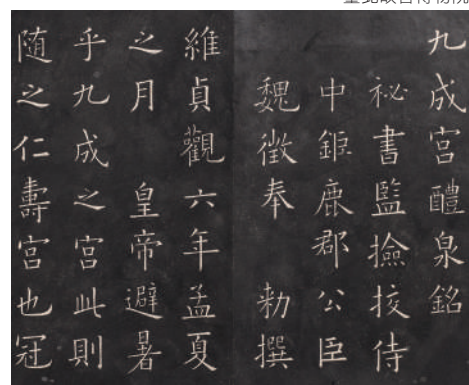 九成宮醴泉銘
祕書監撿挍侍
中鉅鹿郡公臣
魏徵奉 勑撰
維貞觀六年孟夏
之月 皇帝避暑
乎九成之宮此則
随之仁壽宮也冠